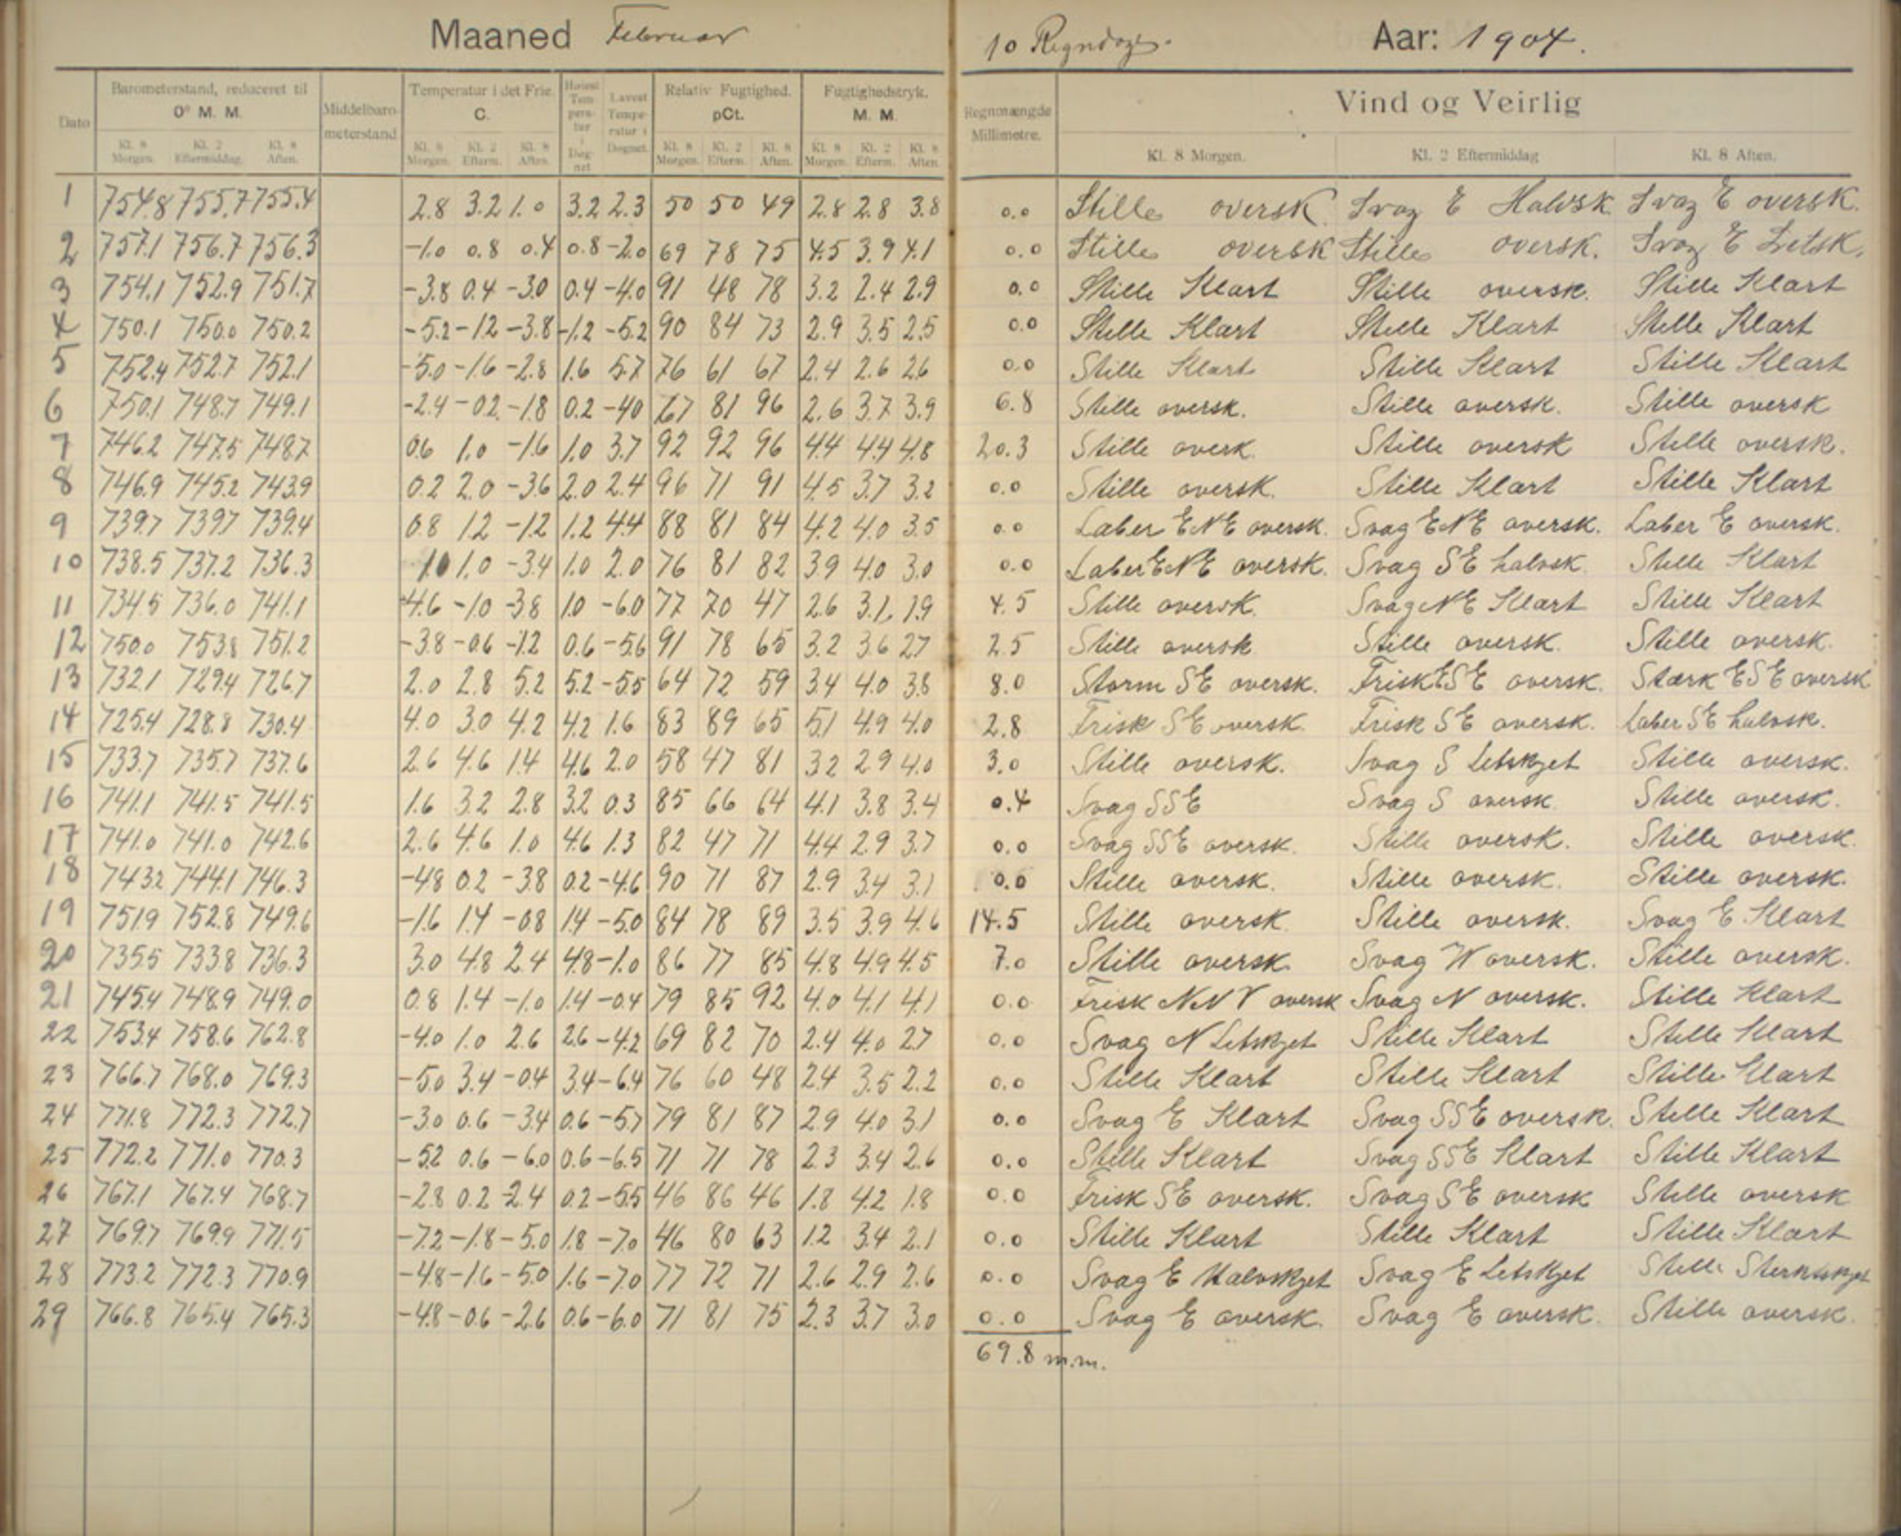 Maaned Februar 10 Regndage. Aar: 1904.
Dato Barometerstand, reduceret til 0° M. M. Middelbarometerstand Temperatur i det Frie. C. Høiest Temperatur i Døgnet Lavest Temperatur i Døgnet. Relativ Fugtighed. pCt. Fugtighedstryk. M. M. Regnmængde Millimetre. Vind og Veirlig
Kl. 8 Morgen. Kl. 2 Eftermiddag. Kl. 8 Aften. Kl. 8 Morgen. Kl. 2 Efterm. Kl. 8 Aften. Kl. 8 Morgen. Kl. 2 Efterm. Kl. 8 Aften. Kl. 8 Morgen. Kl. 2 Efterm. Kl. 8 Aften. Kl. 8 Morgen. Kl. 2 Eftermiddag Kl. 8 Aften.
1 754.8 755.7 755.4 2.8 3.2 1.0 3.2 2.3 50 50 49 2.8 2.8 3.8 0.0 Stille oversk. Svag E Halvsk. Svag E oversk.
2 757.1 756.7 756.3 -1.0 0.8 0.4 0.8 -2.0 69 78 75 4.5 3.9 4.1 0.0 Stille oversk Stille oversk. Svag E Letsk.
3 754.1 752.9 751.7 -3.8 0.4 -3.0 0.4 -4.0 91 48 78 3.2 2.4 2.9 0.0 Stille Klart Stille oversk. Stille Klart
4 750.1 750.0 750.2 -5.2 -1.2 -3.8 -1.2 -5.2 90 84 73 2.9 3.5 2.5 0.0 Stille Klart Stille Klart Stille Klart
5 752.4 752.7 752.1 -5.0 -1.6 -2.8 1.6 5.7 76 61 67 2.4 2.6 2.6 0.0 Stille Klart Stille Klart Stille Klart
6 750.1 748.7 749.1 -2.4 -02. -1.8 0.2 -40 67 81 96 2.6 3.7 3.9 6.8 Stille oversk. Stille oversk. Stille oversk
7 746.2 747.5 748.7 0.6 1.0 -1.6 1.0 3.7 92 92 96 4.4 4.4 4.8 20.3 Stille overk. Stille oversk Stille oversk.
8 746.9 745.2 743.9 0.2 2.0 -3.6 2.0 2.4 96 71 91 4.5 3.7 3.2 0.0 Stille oversk. Stille Klart Stille Klart
9 739.7 739.7 739.4 0.8 1.2 -1.2 1.2 4.4 88 81 84 4.2 4.0 3.5 0.0 Laber ENE oversk. Svag ENE oversk. Laber E oversk.
10 738.5 737.2 736.3 1.0 1.0 -3.4 1.0 2.0 76 81 82 3.9 4.0 3.0 0.0 Laber ENE oversk. Svag SE halvsk. Stille Klart
11 734.5 736.0 741.1 -4.6 -1.0 -3.8 1.0 -6.0 77 70 47 2.6 3.1 1.9 4.5 Stille oversk. Svag NE Klart Stille Klart
12 750.0 753.8 751.2 -3.8 -0.6 -1.2 0.6 -5.6 91 78 65 3.2 3.6 2.7 2.5 Stille oversk Stille oversk. Stille oversk.
13 732.1 729.4 726.7 2.0 2.8 5.2 5.2 -5.5 64 72 59 3.4 4.0 3.8 8.0 Storm SE oversk. Frisk ESE oversk. Stærk ESE oversk
14 725.4 728.8 730.4 4.0 3.0 4.2 4.2 1.6 83 89 65 5.1 4.9 4.0 2.8 Frisk SE oversk. Frisk SE oversk. Laber SE halvsk.
15 733.7 735.7 737.6 2.6 4.6 1.4 4.6 2.0 58 47 81 3.2 2.9 4.0 3.0 Stille oversk. Svag S Letskyet Stille oversk.
16 741.1 741.5 741.5 1.6 3.2 2.8 3.2 0.3 85 66 64 4.1 3.8 3.4 0.4 Svag SSE Svag S oversk. Stille oversk.
17 741.0 741.0 742.6 2.6 4.6 1.0 4.6 1.3 82 47 71 4.4 2.9 3.7 0.0 Svag SSE oversk. Stille oversk. Stille oversk.
18 743.2 744.1 746.3 -4.8 0.2 -3.8 0.2 -4.6 90 71 87 2.9 3.4 3.1 0.0 Stille oversk. Stille oversk. Stille oversk.
19 751.9 752.8 749.6 -1.6 1.4 -0.8 1.4 -5.0 84 78 89 3.5 3.9 4.6 14.5 Stille oversk. Stille oversk. Svag E Klart
20 735.5 733.8 736.3 3.0 4.8 2.4 4.8 -1.0 86 77 85 4.8 4.9 4.5 7.0 Stille oversk. Svag W oversk. Stille oversk.
21 745.4 748.9 749.0 0.8 1.4 -1.0 1.4 -0.4 79 85 92 4.0 4.1 4.1 0.0 Frisk NNV oversk Svag N oversk. Stille Klart
22 753.4 758.6 762.8 -4.0 1.0 2.6 2.6 -4.2 69 82 70 2.4 4.0 2.7 0.0 Svag N Letskyet Stille Klart Stille Klart
23 766.7 768.0 769.3 -5.0 3.4 -0.4 3.4 -6.4 76 60 48 2.4 3.5 2.2 0.0 Stille Klart Stille Klart Stille Klart
24 771.8 772.3 772.7 -3.0 0.6 -3.4 0.6 -5.7 79 81 87 2.9 4.0 3.1 0.0 Svag E Klart Svag SSE oversk. Stille Klart
25 772.2 771.0 770.3 -5.2 0.6 -6.0 0.6 -6.5 71 71 78 2.3 3.4 2.6 0.0 Stille Klart Svag SSE Klart Stille Klart
26 767.1 767.4 768.7 -2.8 0.2 -2.4 0.2 -5.5 46 86 46 1.8 4.2 1.8 0.0 Frisk SE oversk. Svag SE oversk Stille oversk
27 769.7 769.9 771.5 -7.2 -1.8 -5.0 1.8 -7.0 46 80 63 1.2 3.4 2.1 0.0 Stille Klart Stille Klart Stille Klart
28 773.2 772.3 770.9 -4.8 -1.6 -5.0 1.6 -7.0 77 72 71 2.6 2.9 2.6 0.0 Svag E Halvskyet Svag E Letskyet Stille
29 766.8 765.4 765.3 -4.8 -0.6 -2.6 0.6 -6.0 71 81 75 2.3 3.7 3.0 0.0 Svag E oversk. Svag E oversk. Stille oversk.
69.8 m.m.